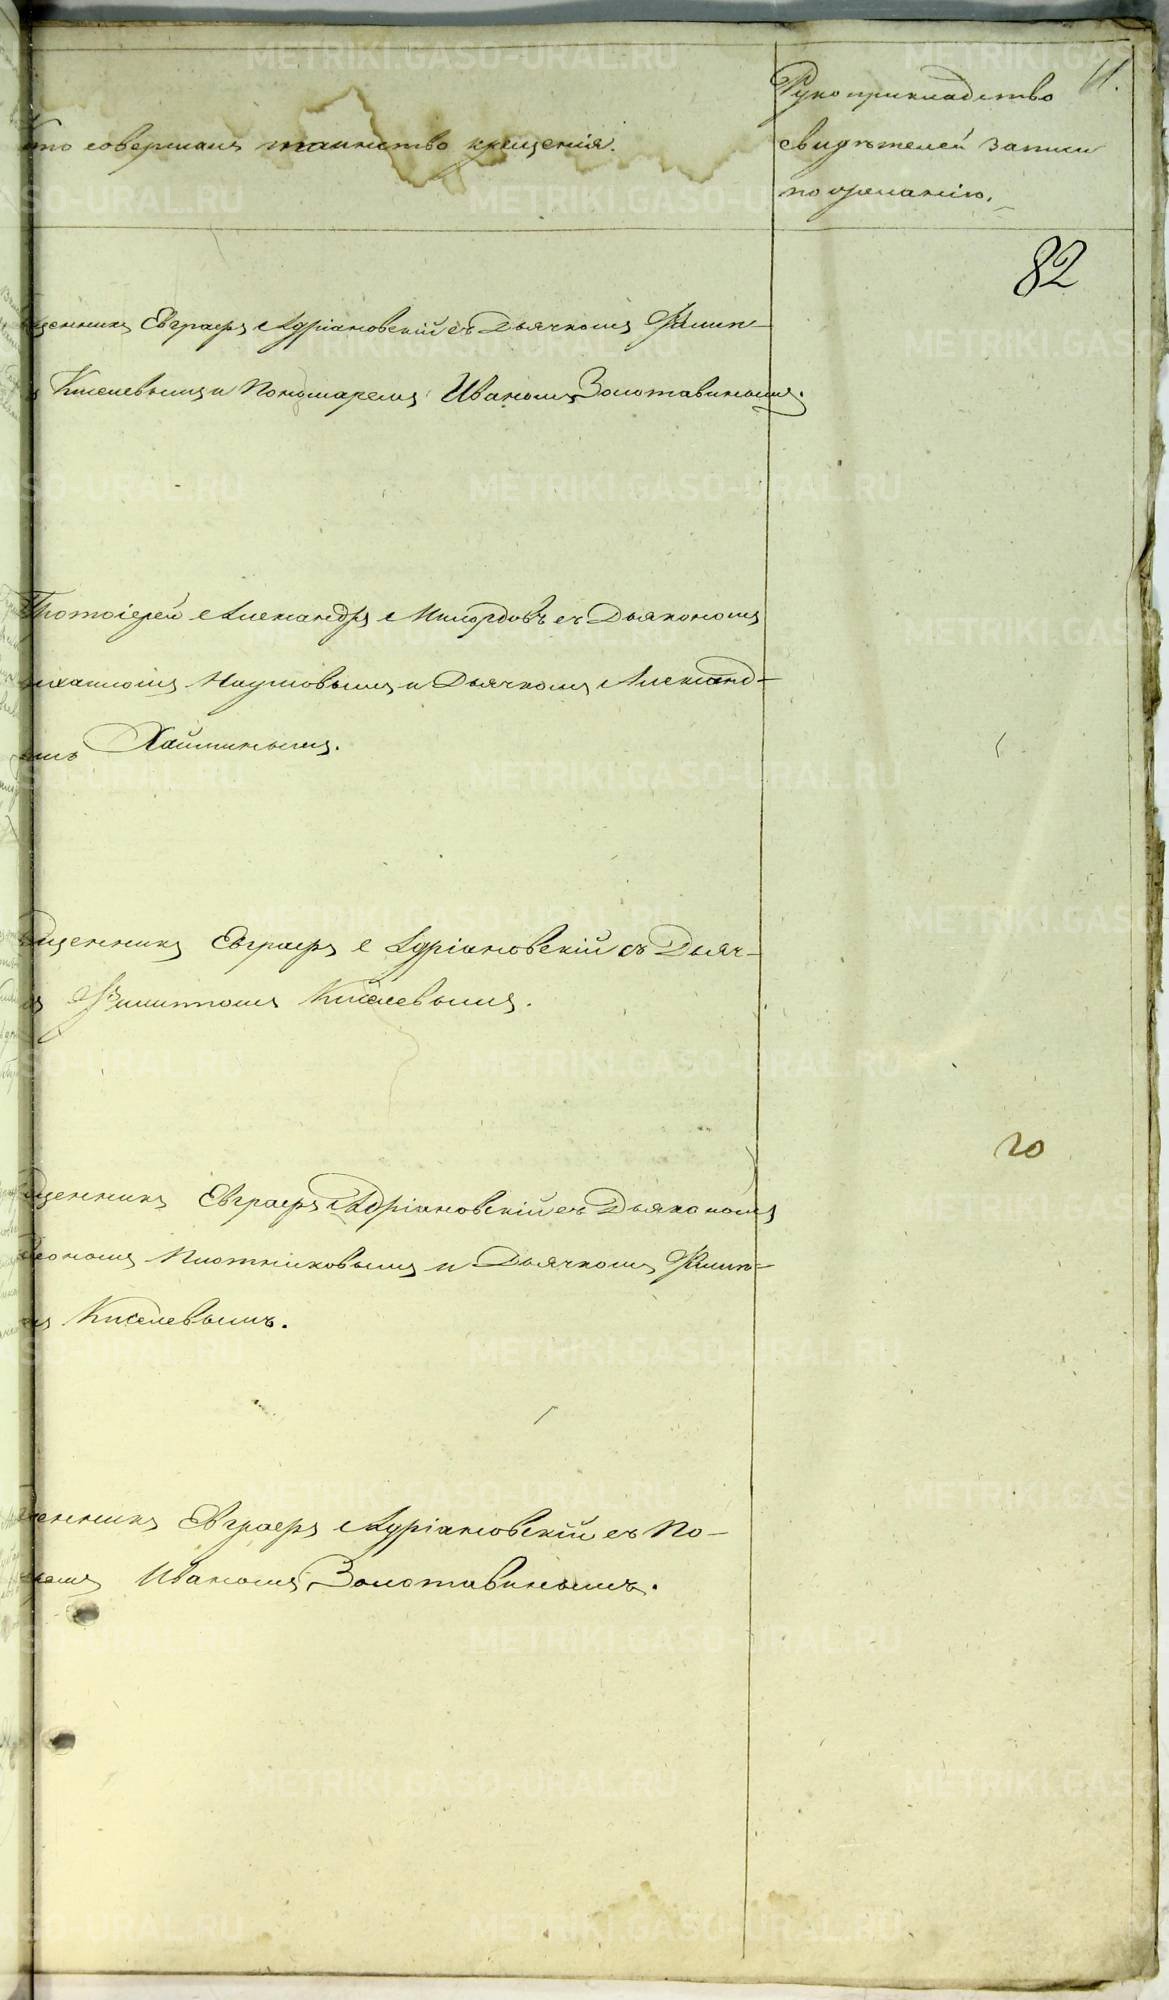 11.
Рукоприкладство
кто совершалъ таинство крещенія.
свидѣтелей записи
по желанію.
82
щенникъ Евграфъ Адріановскій съ Дьячкомъ Филип-
Киселевымъ и Пономаремъ Иваномъ Золотавинымъ.
Протоіерей Александръ Милордовъ съ Дьякономъ
ихаиломъ Наумовымъ и Дьячкомъ Александ-
омъ Хайминымъ.
щенникъ Евграфъ Адріановскій съ Дьяч-
Филиппомъ Киселевымъ.
20
щенникъ Евграфъ Адріановскій съ Дьякономъ
Плотниковымъ и Дьячкомъ Филип-
Киселевымъ.
щенникъ Евграфъ Адріановскій съ По-
Иваномъ Золотавинымъ.
METRIKI.GASO-URAL.RU